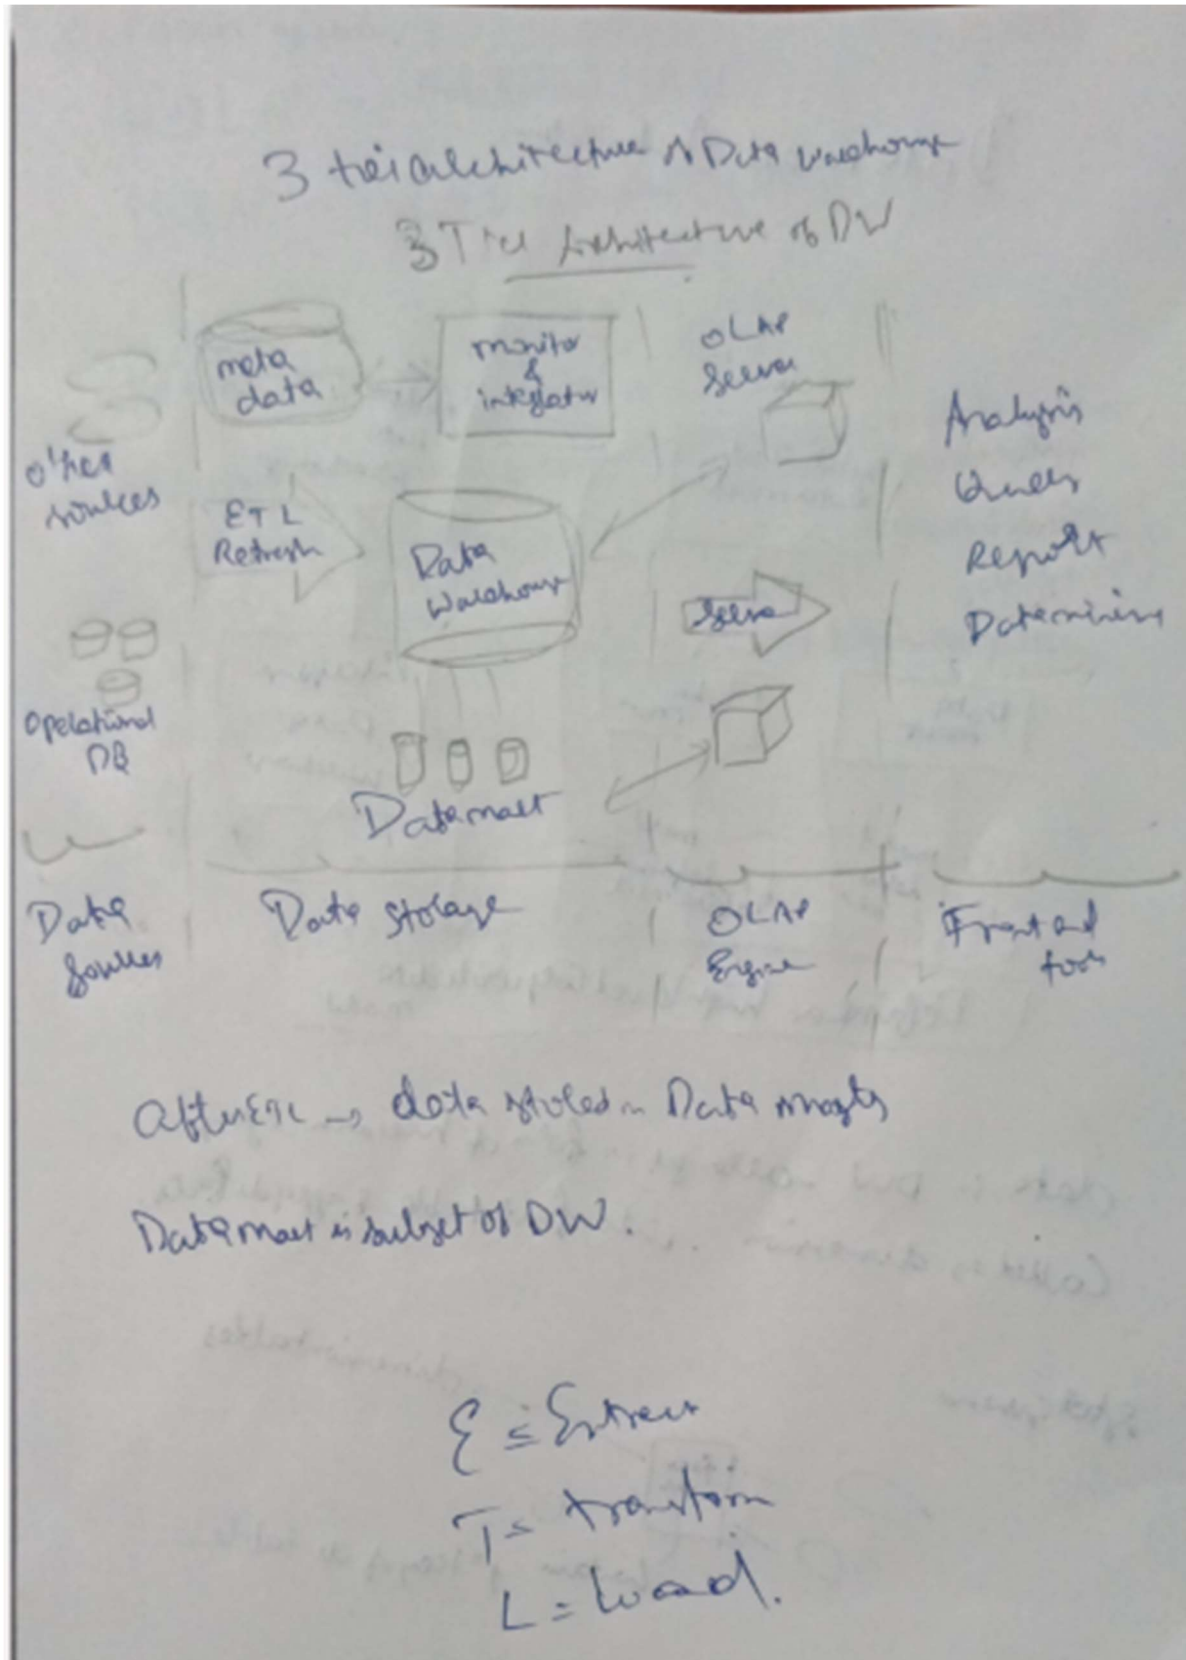 3 tier architecture of Data warehouse
3 Tier Architecture of DW
meta
data
monitor
&
integrator
OLAP
Server
other
sources
ETL
Refresh
Data
Warehouse
Serve
Analysis
Query
Report
Datamining
Operational
DB
Datamart
Data
Sources
Data storage
OLAP
Engine
Front end
tools
After ETL → data stored in Data marts
Datamart is subset of DW.
E = Extract
T = transform
L = Load.